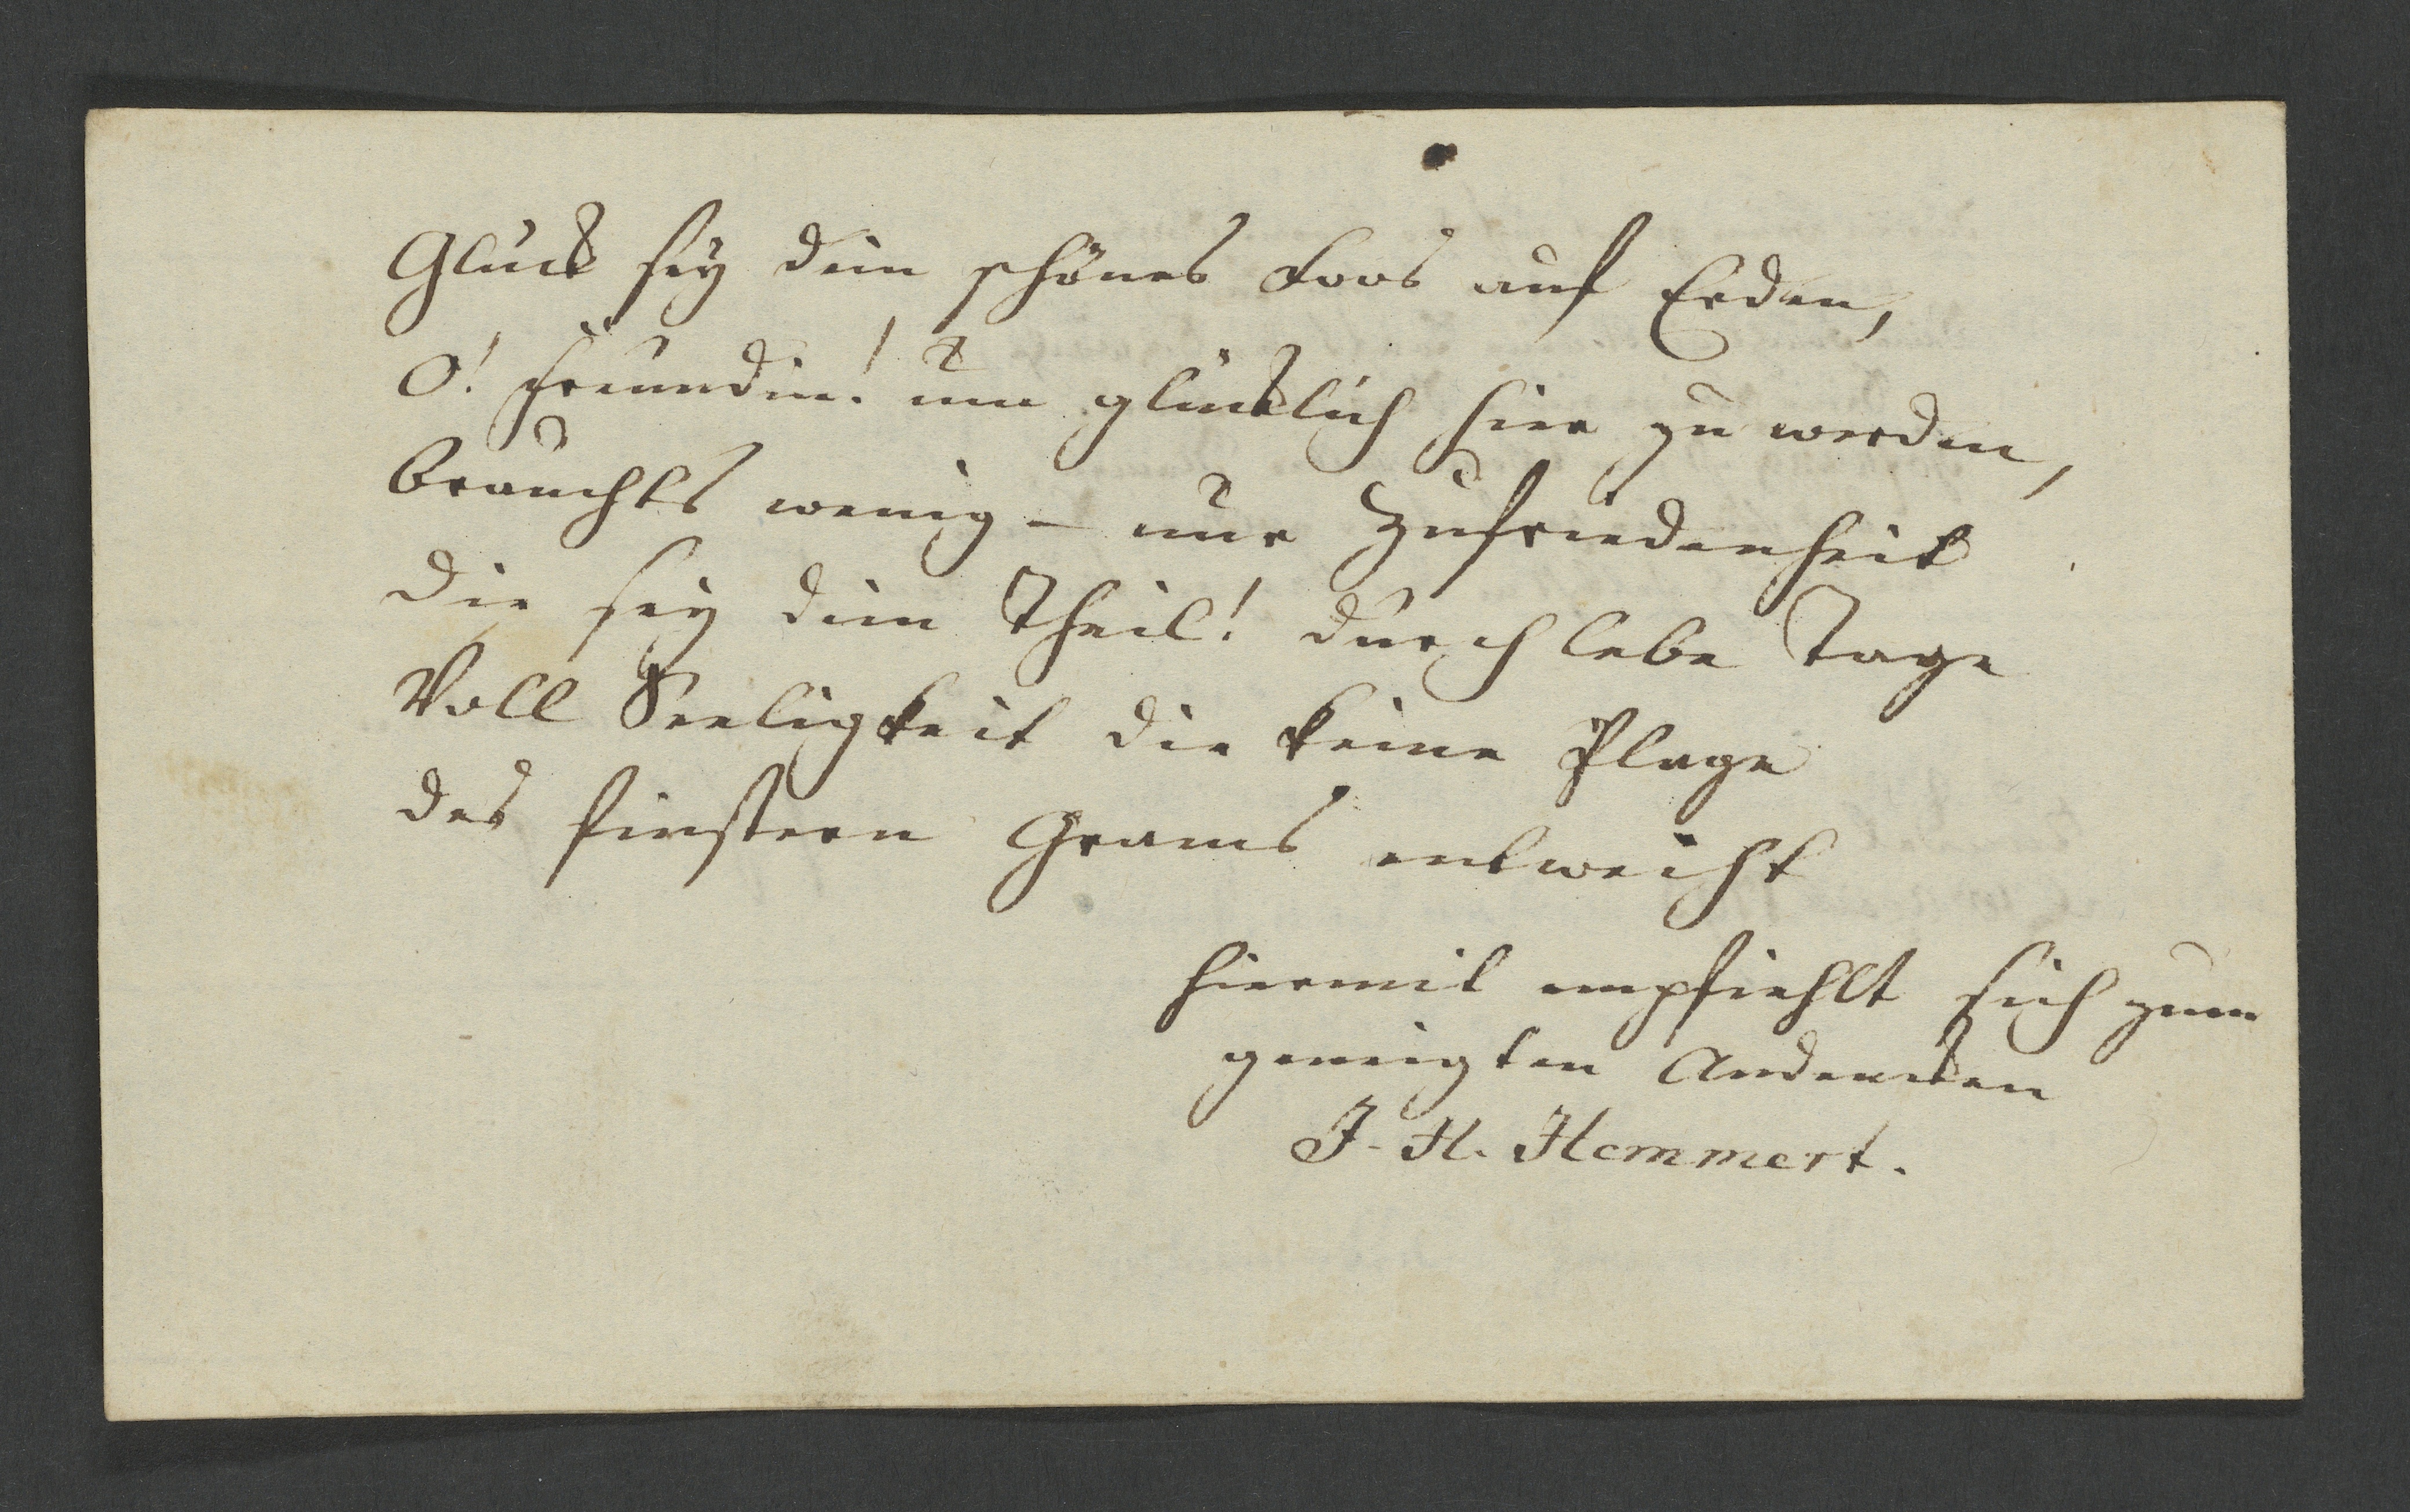 Glück sey dein schönes Loos auf Erden,
O! Freundin! um glücklich hier zu werden,
brauchts wenig – nur Zufriedenheit
die sey dein Theil! durchlebe Tage
Voll Seeligkeit die keine Plage
des finstern Grams entweiht
hiermit empfiehlt sich zum
geneigten Andencken
J. H. Hemmert.